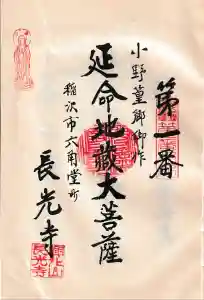 第一番
小野篁郷御作
延命地藏大菩薩
稲沢市六角堂町
長光寺
長光寺